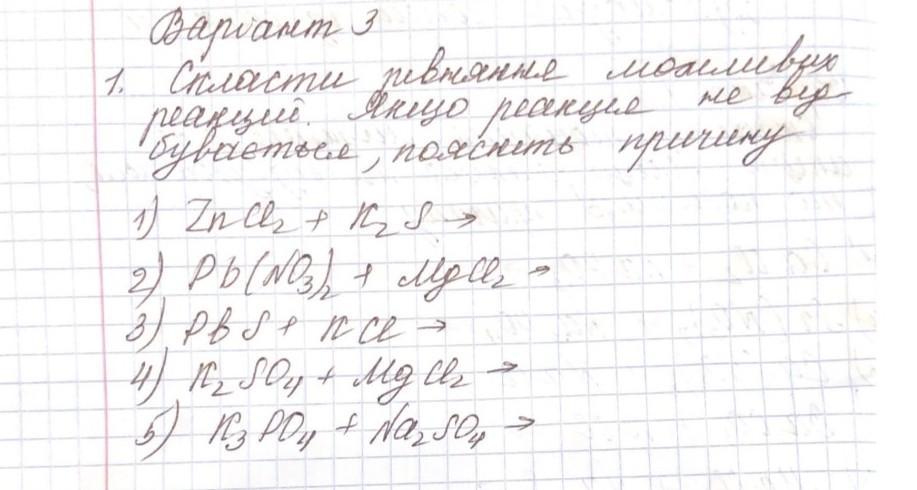 Варіант 3
1. Скласти рівняння можливих
реакцій. Якщо реакція не від
бувається, поясніть причину
1) ZnCl₂ + K₂S →
2) Pb(NO₃)₂ + MgCl₂ →
3) PbS + KCl →
4) K₂SO₄ + MgCl₂ →
5) K₃PO₄ + Na₂SO₄ →